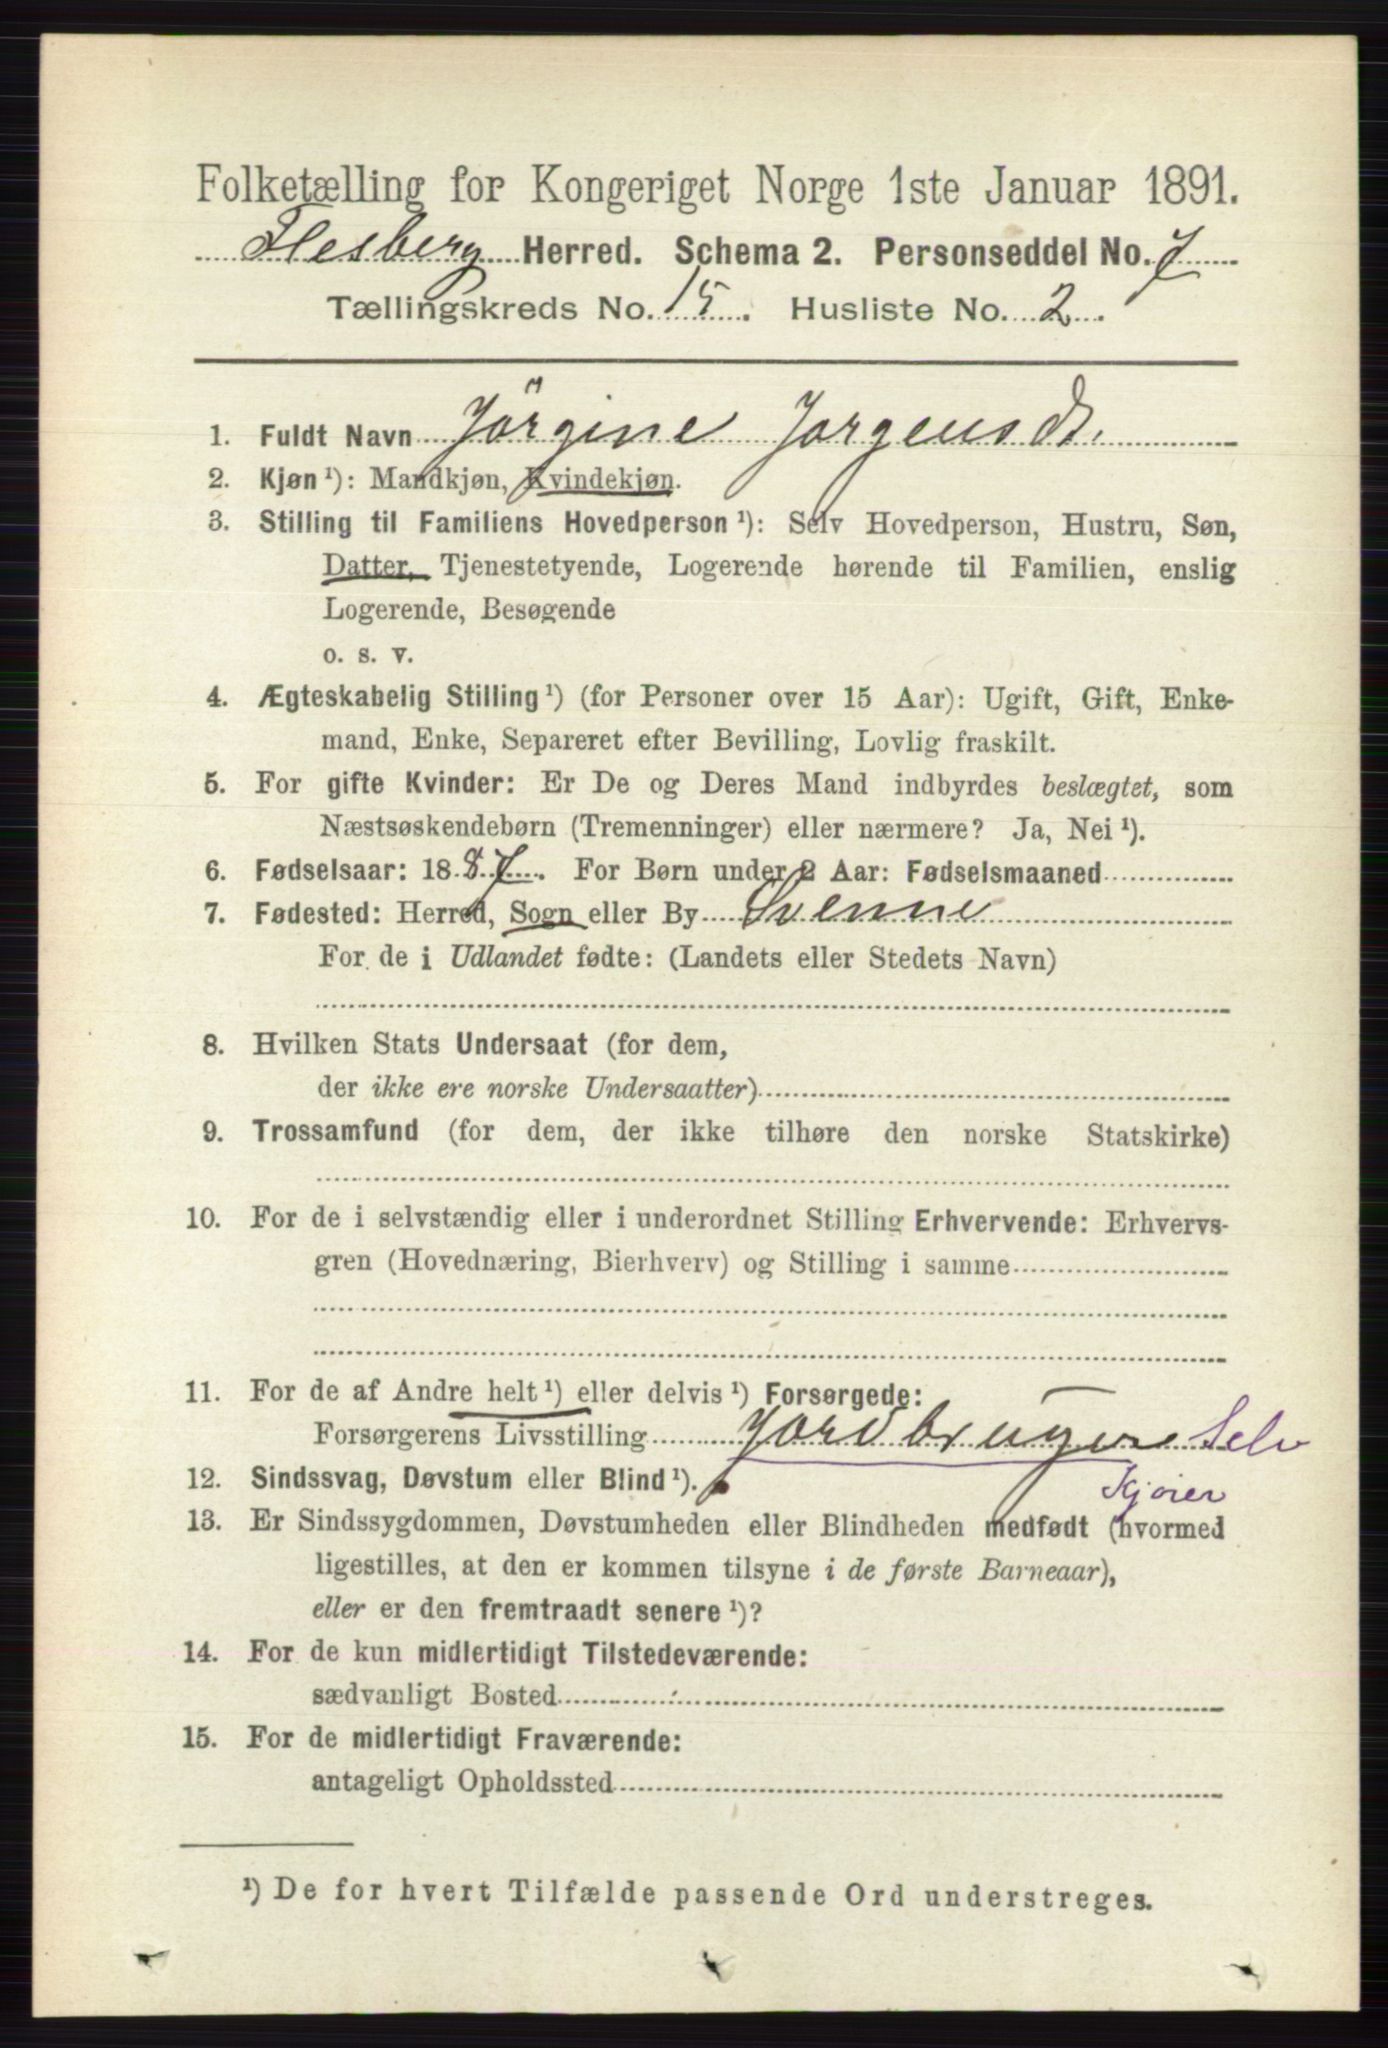 Folketælling for Kongeriget Norge 1ste Januar 1891.
Flesberg Herred. Schema 2. Personseddel No. 7
Tællingskreds No. 15. Husliste No. 2.
1. Fuldt Navn Jörgine Jorgensdt.
2. Kjøn ¹): Mandkjøn, Kvindekjøn.
3. Stilling til Familiens Hovedperson ¹): Selv Hovedperson, Hustru, Søn,
Datter, Tjenestetyende, Logerende hørende til Familien, enslig
Logerende, Besøgende
o. s. v.
4. Ægteskabelig Stilling ¹) (for Personer over 15 Aar): Ugift, Gift, Enke-
mand, Enke, Separeret efter Bevilling, Lovlig fraskilt.
5. For gifte Kvinder: Er De og Deres Mand indbyrdes beslægtet, som
Næstsøskendebørn (Tremenninger) eller nærmere? Ja, Nei ¹).
6. Fødselsaar: 1887. For Børn under 2 Aar: Fødselsmaaned
7. Fødested: Herred, Sogn eller By Svenne
For de i Udlandet fødte: (Landets eller Stedets Navn)
8. Hvilken Stats Undersaat (for dem,
der ikke ere norske Undersaatter)
9. Trossamfund (for dem, der ikke tilhøre den norske Statskirke)
10. For de i selvstændig eller i underordnet Stilling Erhvervende: Erhvervs-
gren (Hovednæring, Bierhverv) og Stilling i samme
11. For de af Andre helt ¹) eller delvis ¹) Forsørgede:
Forsørgerens Livsstilling Jordbruger Selv
12. Sindssvag, Døvstum eller Blind ¹). Kjøier
13. Er Sindssygdommen, Døvstumheden eller Blindheden medfødt (hvormed
ligestilles, at den er kommen tilsyne i de første Barneaar),
eller er den fremtraadt senere ¹)?
14. For de kun midlertidigt Tilstedeværende:
sædvanligt Bosted
15. For de midlertidigt Fraværende:
antageligt Opholdssted
¹) De for hvert Tilfælde passende Ord understreges.